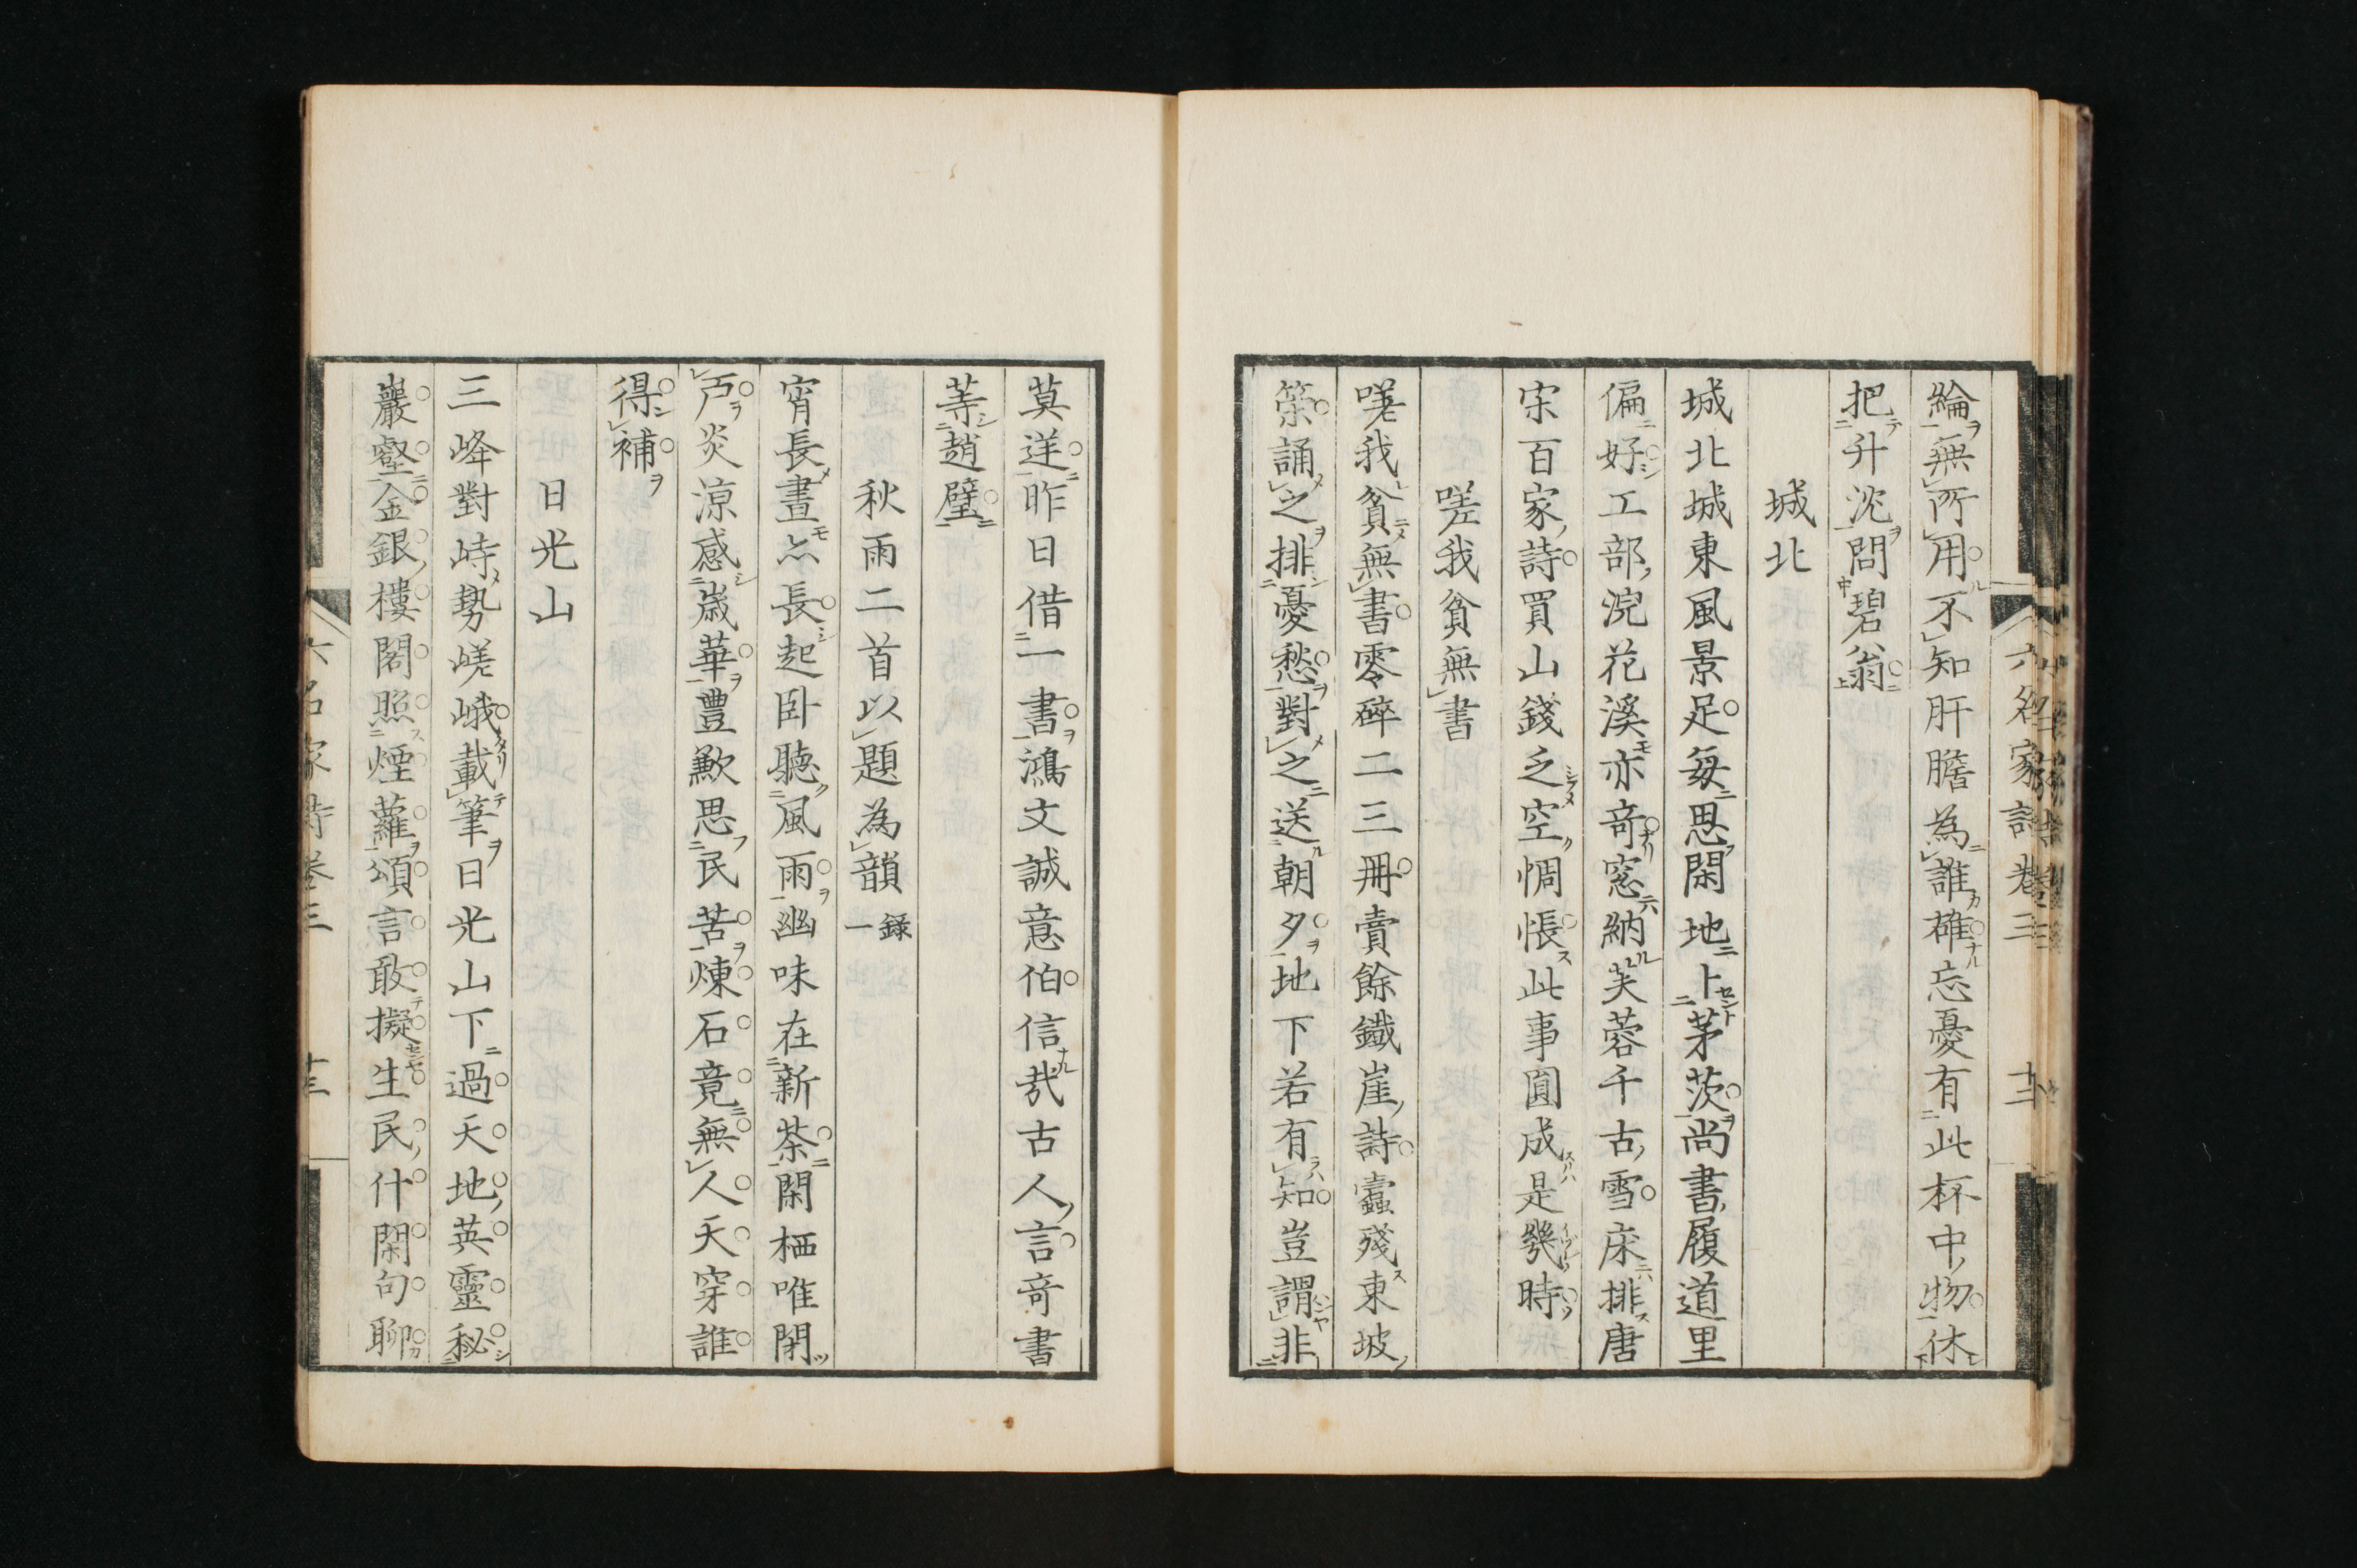 綸無所用不知肝膽為誰確忘憂有此杯中物休
把升沈問碧翁
城北
城北城東風景足每思閑地卜茅茨尚書履道里
偏好工部浣花溪亦奇窓納芙蓉千古雪床排唐
宋百家詩買山錢乏空惆悵此事圓成是幾時
嗟我貧無書
嗟我貧無書零碎二三冊賣餘鐵崖詩蠹殘東坡
策誦之排憂愁對之送朝夕地下若有知豈謂非
六名家詩卷三
十二
莫逆昨日借一書鴻文誠意伯信哉古人言奇書
等趙璧
秋雨二首以題為韻 録一
宵長晝亦長起臥聽風雨幽味在新茶閑栖唯閉
戸炎涼感歳華豊歉思民苦煉石竟無人天穿誰
得補
日光山
三峰對峙勢嵯峨載筆日光山下過天地英靈秘
巖壑金銀樓閣照煙蘿頌言敢擬生民什閑句聊
六名家詩卷三
十三